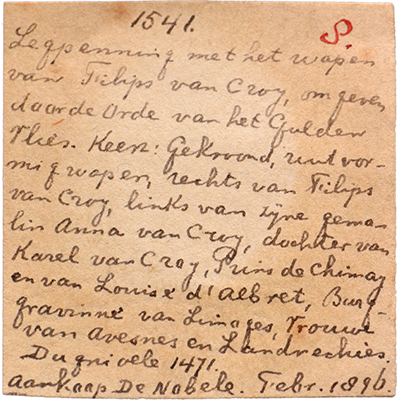 1541.
S.
Legpenning met het wapen
van Filips van Croy, omgeven
door de Orde van het Gulden
Vlies. Keerz: Gekroond, ruitvor-
mig wapen, rechts van Filips
van Croy, links van zijne gema-
lin Anna van Croy, dochter van
Karel van Croy, Prins de Chimay
en van Louise d'Albret, Burg-
gravinne van Limoges, Vrouwe
van Avesnes en Landrechies.
Dugniole 1471.
Aankoop De Nobele. Febr. 1896.